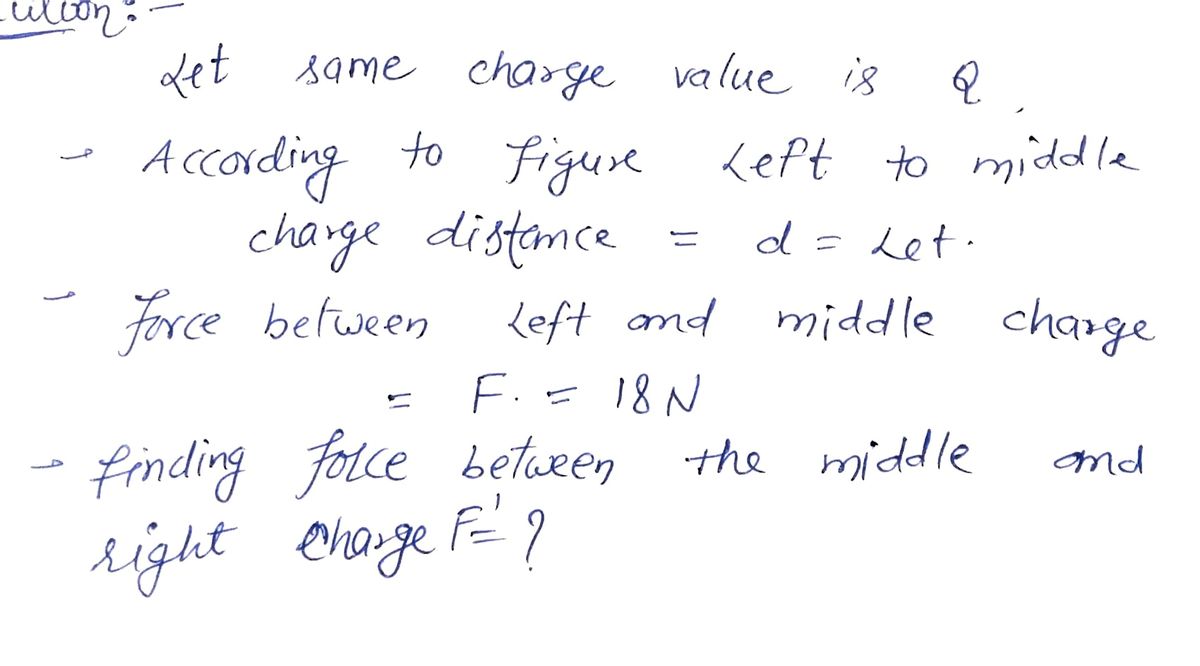 Let same charge value is Q,
→ According to figure Left to middle
charge distance = d = Let.
→ force between Left and middle charge
= F. = 18 N
→ finding force between the middle and
right charge F' = ?